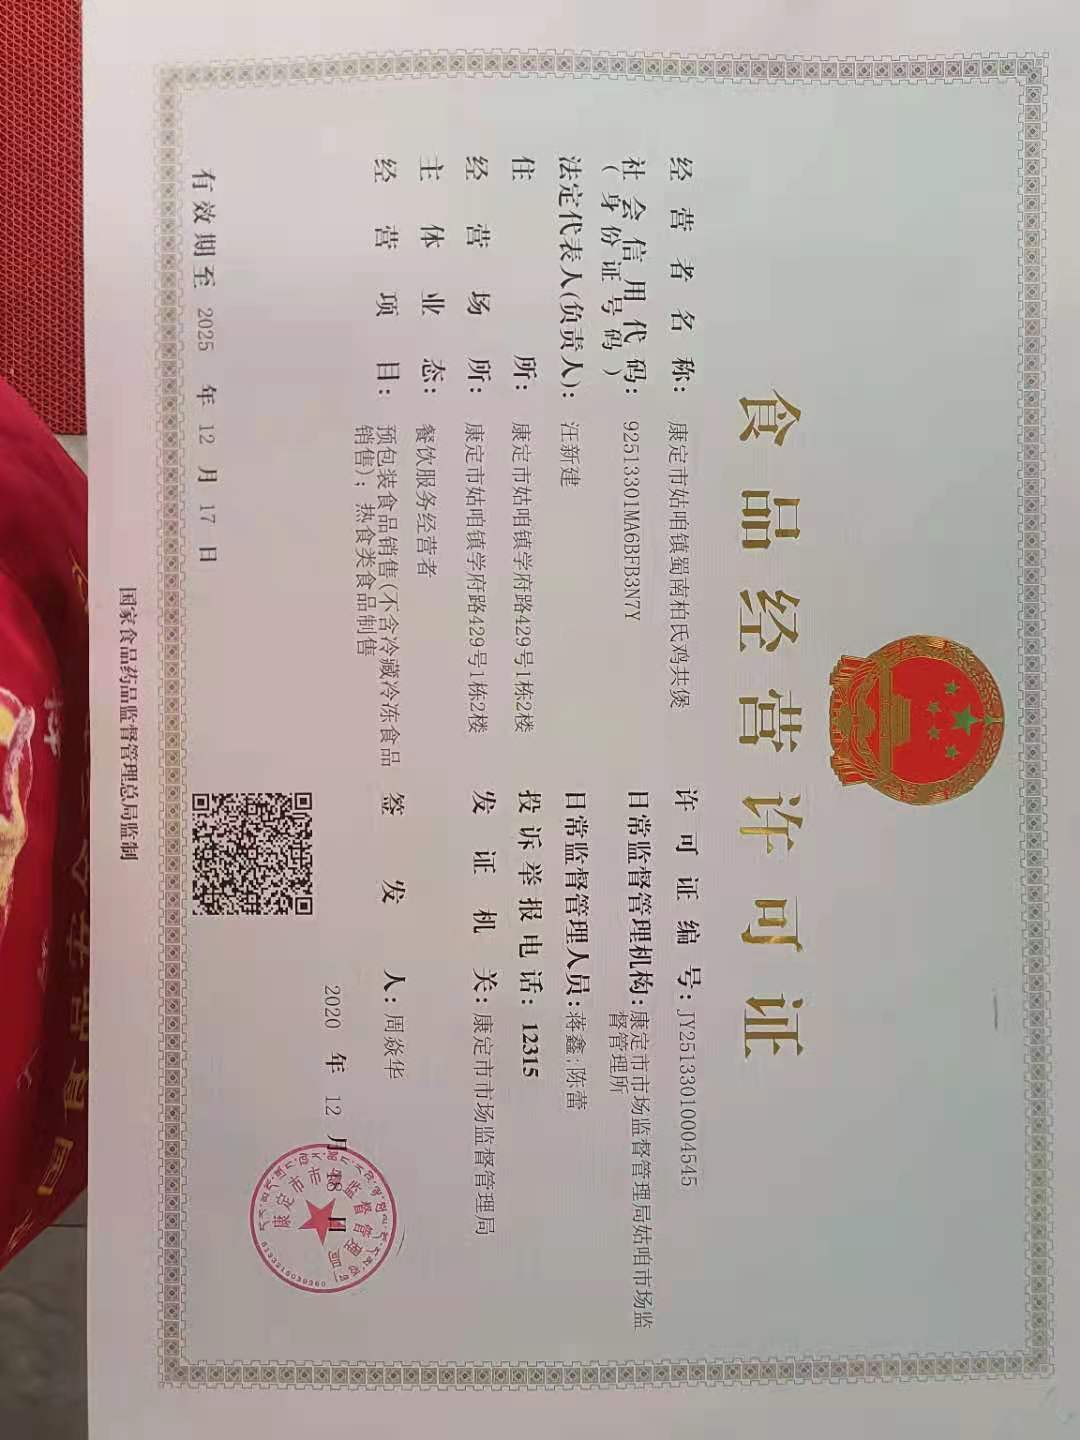 食品经营许可证
经营者名称：康定市姑咱镇蜀南柏氏鸡共煲
社会信用代码：92513301MA6BFB3N7Y
（身份证号码）
法定代表人(负责人)：汪新建
住所：康定市姑咱镇学府路429号1栋2楼
经营场所：康定市姑咱镇学府路429号1栋2楼
主体业态：餐饮服务经营者
经营项目：预包装食品销售(不含冷藏冷冻食品
销售)；热食类食品制售
有效期至 2025 年 12 月 17 日
许可证编号：JY25133010004545
日常监督管理机构：康定市市场监督管理局姑咱市场监
督管理所
日常监督管理人员：蒋鑫;陈蕾
投诉举报电话：12315
发证机关：康定市市场监督管理局
签发人：周焱华
2020 年 12 月 18 日
国家食品药品监督管理总局监制